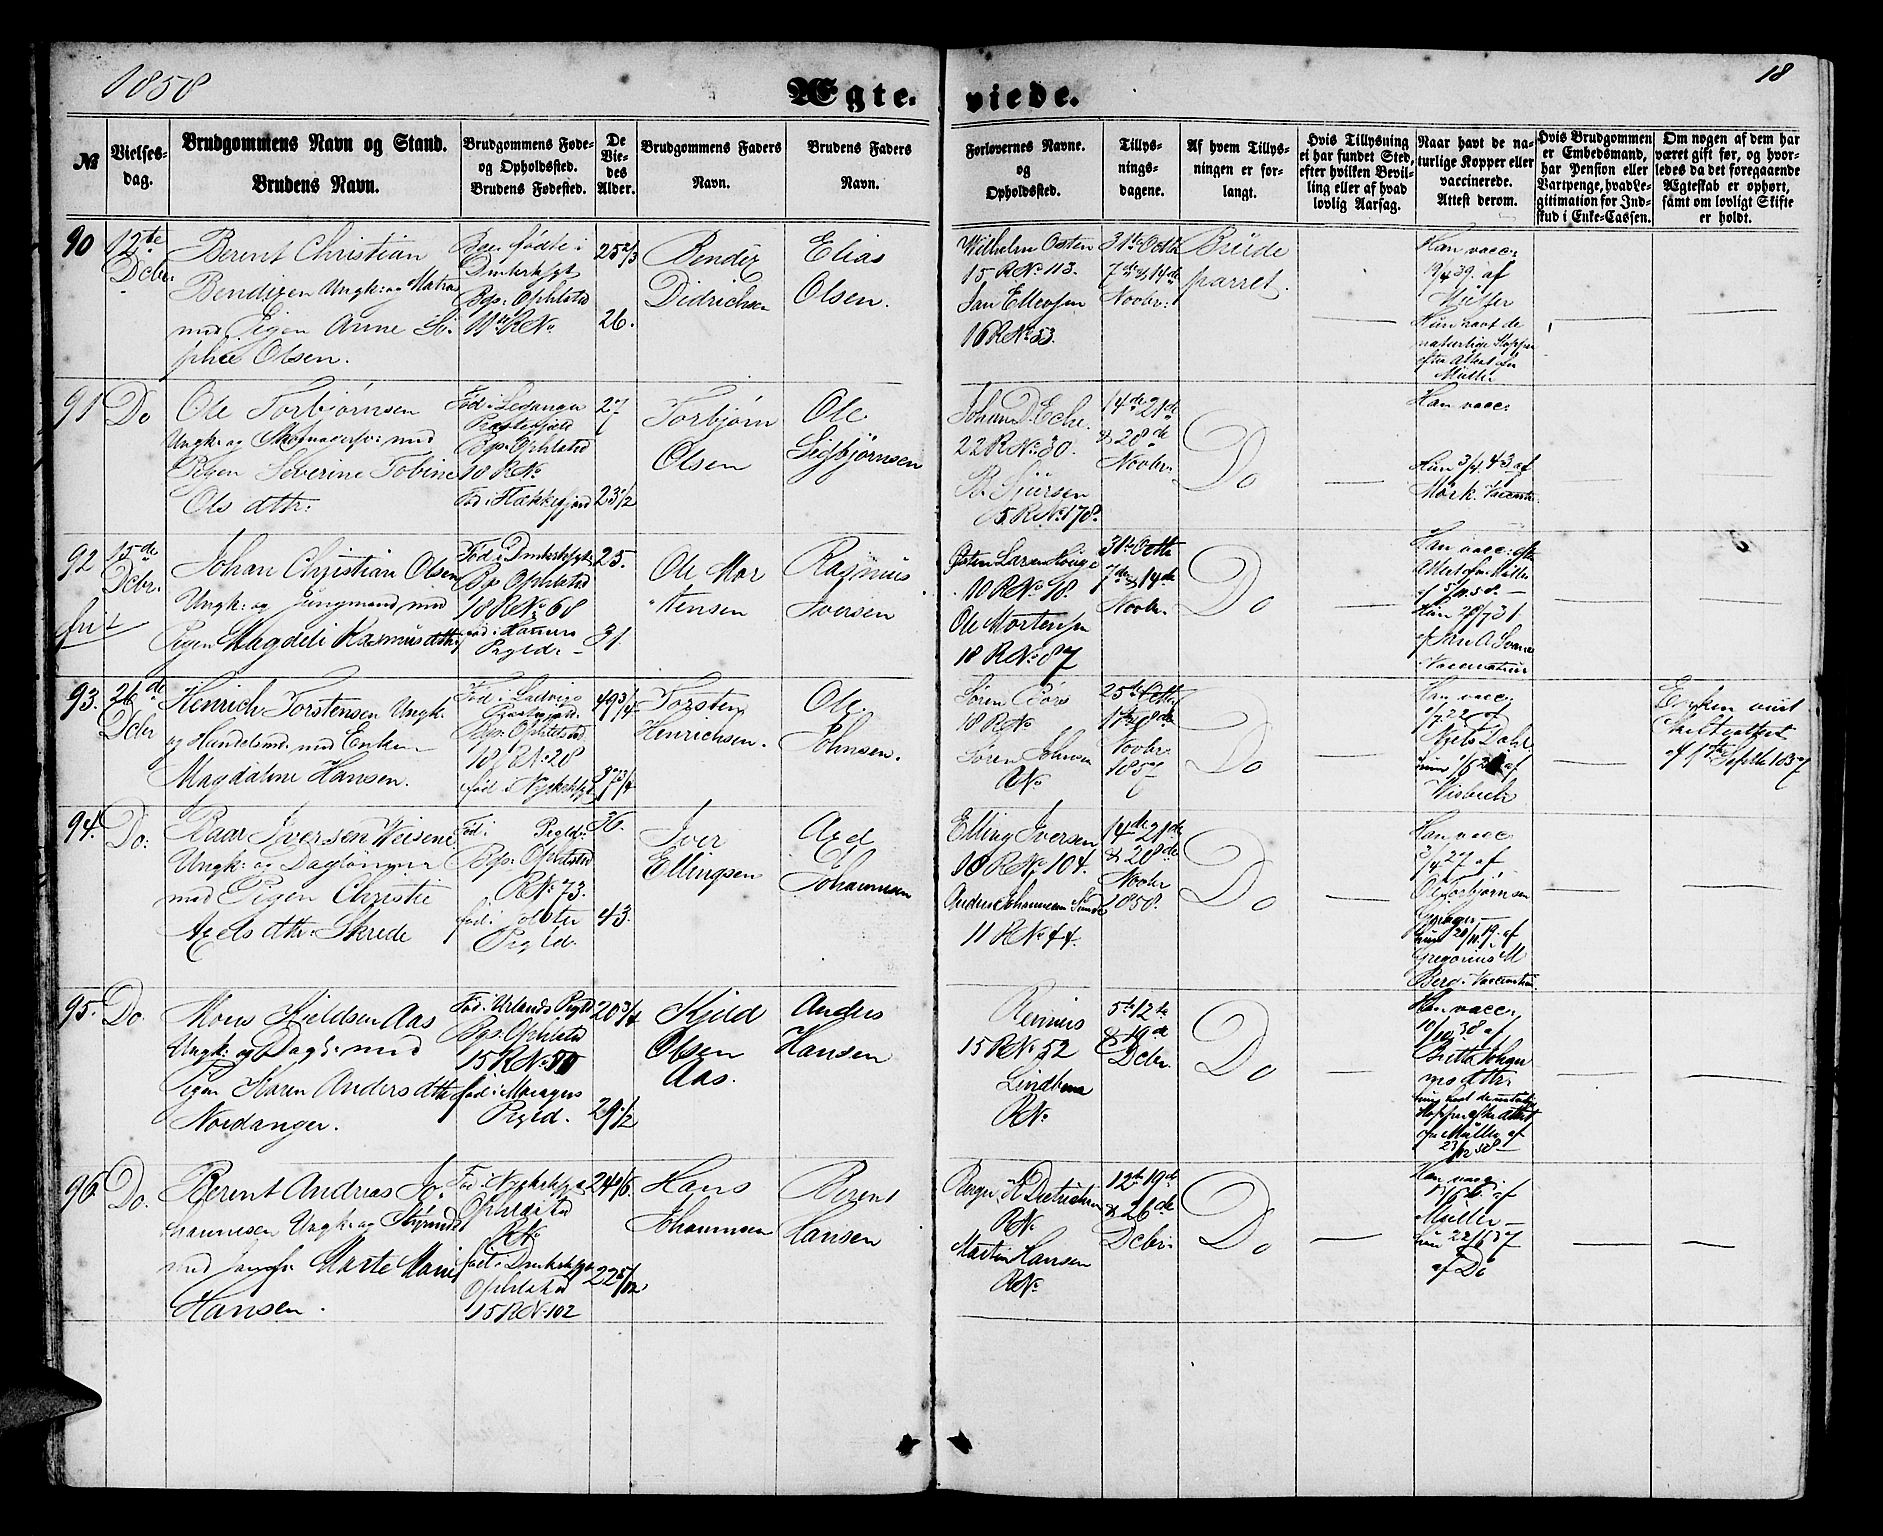 1858
18
Ægte-
viede.
№
Vielses-
dag.
Brudgommens Navn og Stand.
Brudens Navn.
Brudgommens Føde-
og Opholdssted.
Brudens Fødested.
De
Vie-
des
Alder.
Brudgommens Faders
Navn.
Brudens Faders
Navn.
Forlovernes Navne.
og
Opholdssted.
Tillys-
nings-
dagene.
Af hvem Tillys-
ningen er for-
langt.
Hvis Tillysning
ei har fundet Sted,
efter hvilken Bevil-
ling eller af hvad
lovlig Aarsag.
Naar havt de na-
turlige Kopper eller
vaccinerede.
Attest derom.
Hvis Brudgommen
er Embedsmand,
har Pension eller
Vartpenge, hvad Le-
gitimation for Ind-
skud i Enke-Cassen.
Om nogen af dem har
været gift før, og hvor-
ledes da det foregaaende
Ægteskab er ophørt,
samt om lovligt Skifte
er holdt.
90
12te
Dcbr.
Berent Christian
Bendixen Ungk: og Matros
med Pigen Anne So-
phie Olsen.
Bgp. Ophlstd
25 2/3
26.
Bendix
Didrichsen
Elias
Olsen.
Wilhelm Osten
15 R No 113.
Jan Ellevsen
16 R No 53.
31te Octb
7de & 14de
Novbr:
Brude
parret.
Han vacc:
af
Müller
Hun havt de
naturlige Kopper
efter Attest fra
Müller
91
Do
Ole Torbjørnsen
Ungk: og med
Pigen Severine Tobine
Ols dttr:
Bgp. Ophlstd
18 R No
27
23 1/2
Torbjørn
Olsen
Ole
Sigbjørnsen
Johan D. Eche.
22 R No 30.
R. Sjursen
5. R No 178.
14de 21de
& 28de
Novbr:
Do
Han vacc:
Hun 3/9 43 af
Mørk. Vaccinatr:
92
15de
Dcbr.
frit
Johan Christian Olsen
Ungk: og Jungmand med
Pigen Magdeli Rasmusdtter
Bgp. Ophlstd
18 R No 68
Prgld:
25.
31.
Ole Mor
tensen
Rasmus
Iversen
10 R No 18.
Ole Mortensen
18 R No 87
31te Octb
7de & 14de
Novbr.
Do
Han vacc: efter
Attest fra Müller
Hun 28/9 31
Vaccinateur
93.
26de
Dcbr
Henrich Torstensen Ungk.
og Handelsmd. med Enken
Magdaline Hansen.
Fød i Ladvigs
Præstegjeld.
Bgp. Ophlstd
18 R No 28
49 3/4
37 3/4
Torsten
Henrichsen.
Ole
Johnsen.
Søren Børs
18 R No
Søren Johnsen
R No
25de Octb
1ste & 8de
Novbr.
1857
Do
Han vacc:
af
Niels Dahl.
Hun af
Wisbech
Enken viist
Skifteattest
af 1ste Septbr 1837
94.
Do.
Raar Iversen Weisene
Ungk: og Daglønner
med Pigen Christie
Axels dttr. Skrede
Fød i Prgld:
Bgp. Ophlstd
R No 73.
Prgld.
36.
43.
Iver
Ellingsen
Axel
Johannesen
Elling Iversen
18 R No 104.
Anders Johannesen Sunde
11 R No 44.
14de 21de
& 28de
Novbr
1858.
Do
Han vacc:
3/4 27 af
O. Torbjørnsen
Hun 20/10 19. af
Gregorius M
Berg. Vaccinatr:
95.
Do.
Mons Kjeldsen Aas
Ungk: og Dagl: med
Pigen Karen Anders dttr
Nordanger.
Fød i Urlands Prgld
Bgp. Ophlstd
15 R No 80
fød i Mangers
Prgld.
20 3/4
29 1/2
Kjeld
Olsen
Aas.
Anders
Hansen
Reimers
15 R No 52
Lindboe
R No
5te 12te
& 19de
Dcbr.
Do
Han vacc:
10/10 38 af
Britha Johan
nes dttr.
Hun havt de naturlige
Kopper efter Attest
fra Müller af
23/12 58
96.
Do.
Berent Andreas Jo-
hannesen Ungk: og Styrmd
med Jomfr. Marte Marie
Hansen.
Fød i Nykirkesgn
Ophlstd
R No
fød i Domkirkesgn
Ophlstd
15 R No 102
24 1/6.
22 5/12
Hans
Johannesen
Berent
Hansen
R No
Martin Hansen
R No
12te 19de
& 26de
Dcbr:
Do
Han vacc:
af
Müller
Hun 22/6 37
af Do